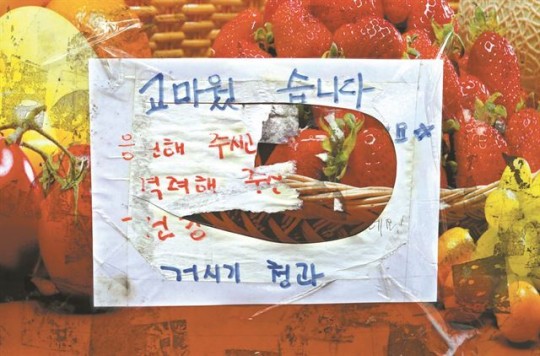 고마웠 습니다
응 해 주시고
격려해 주신
거시기 청과